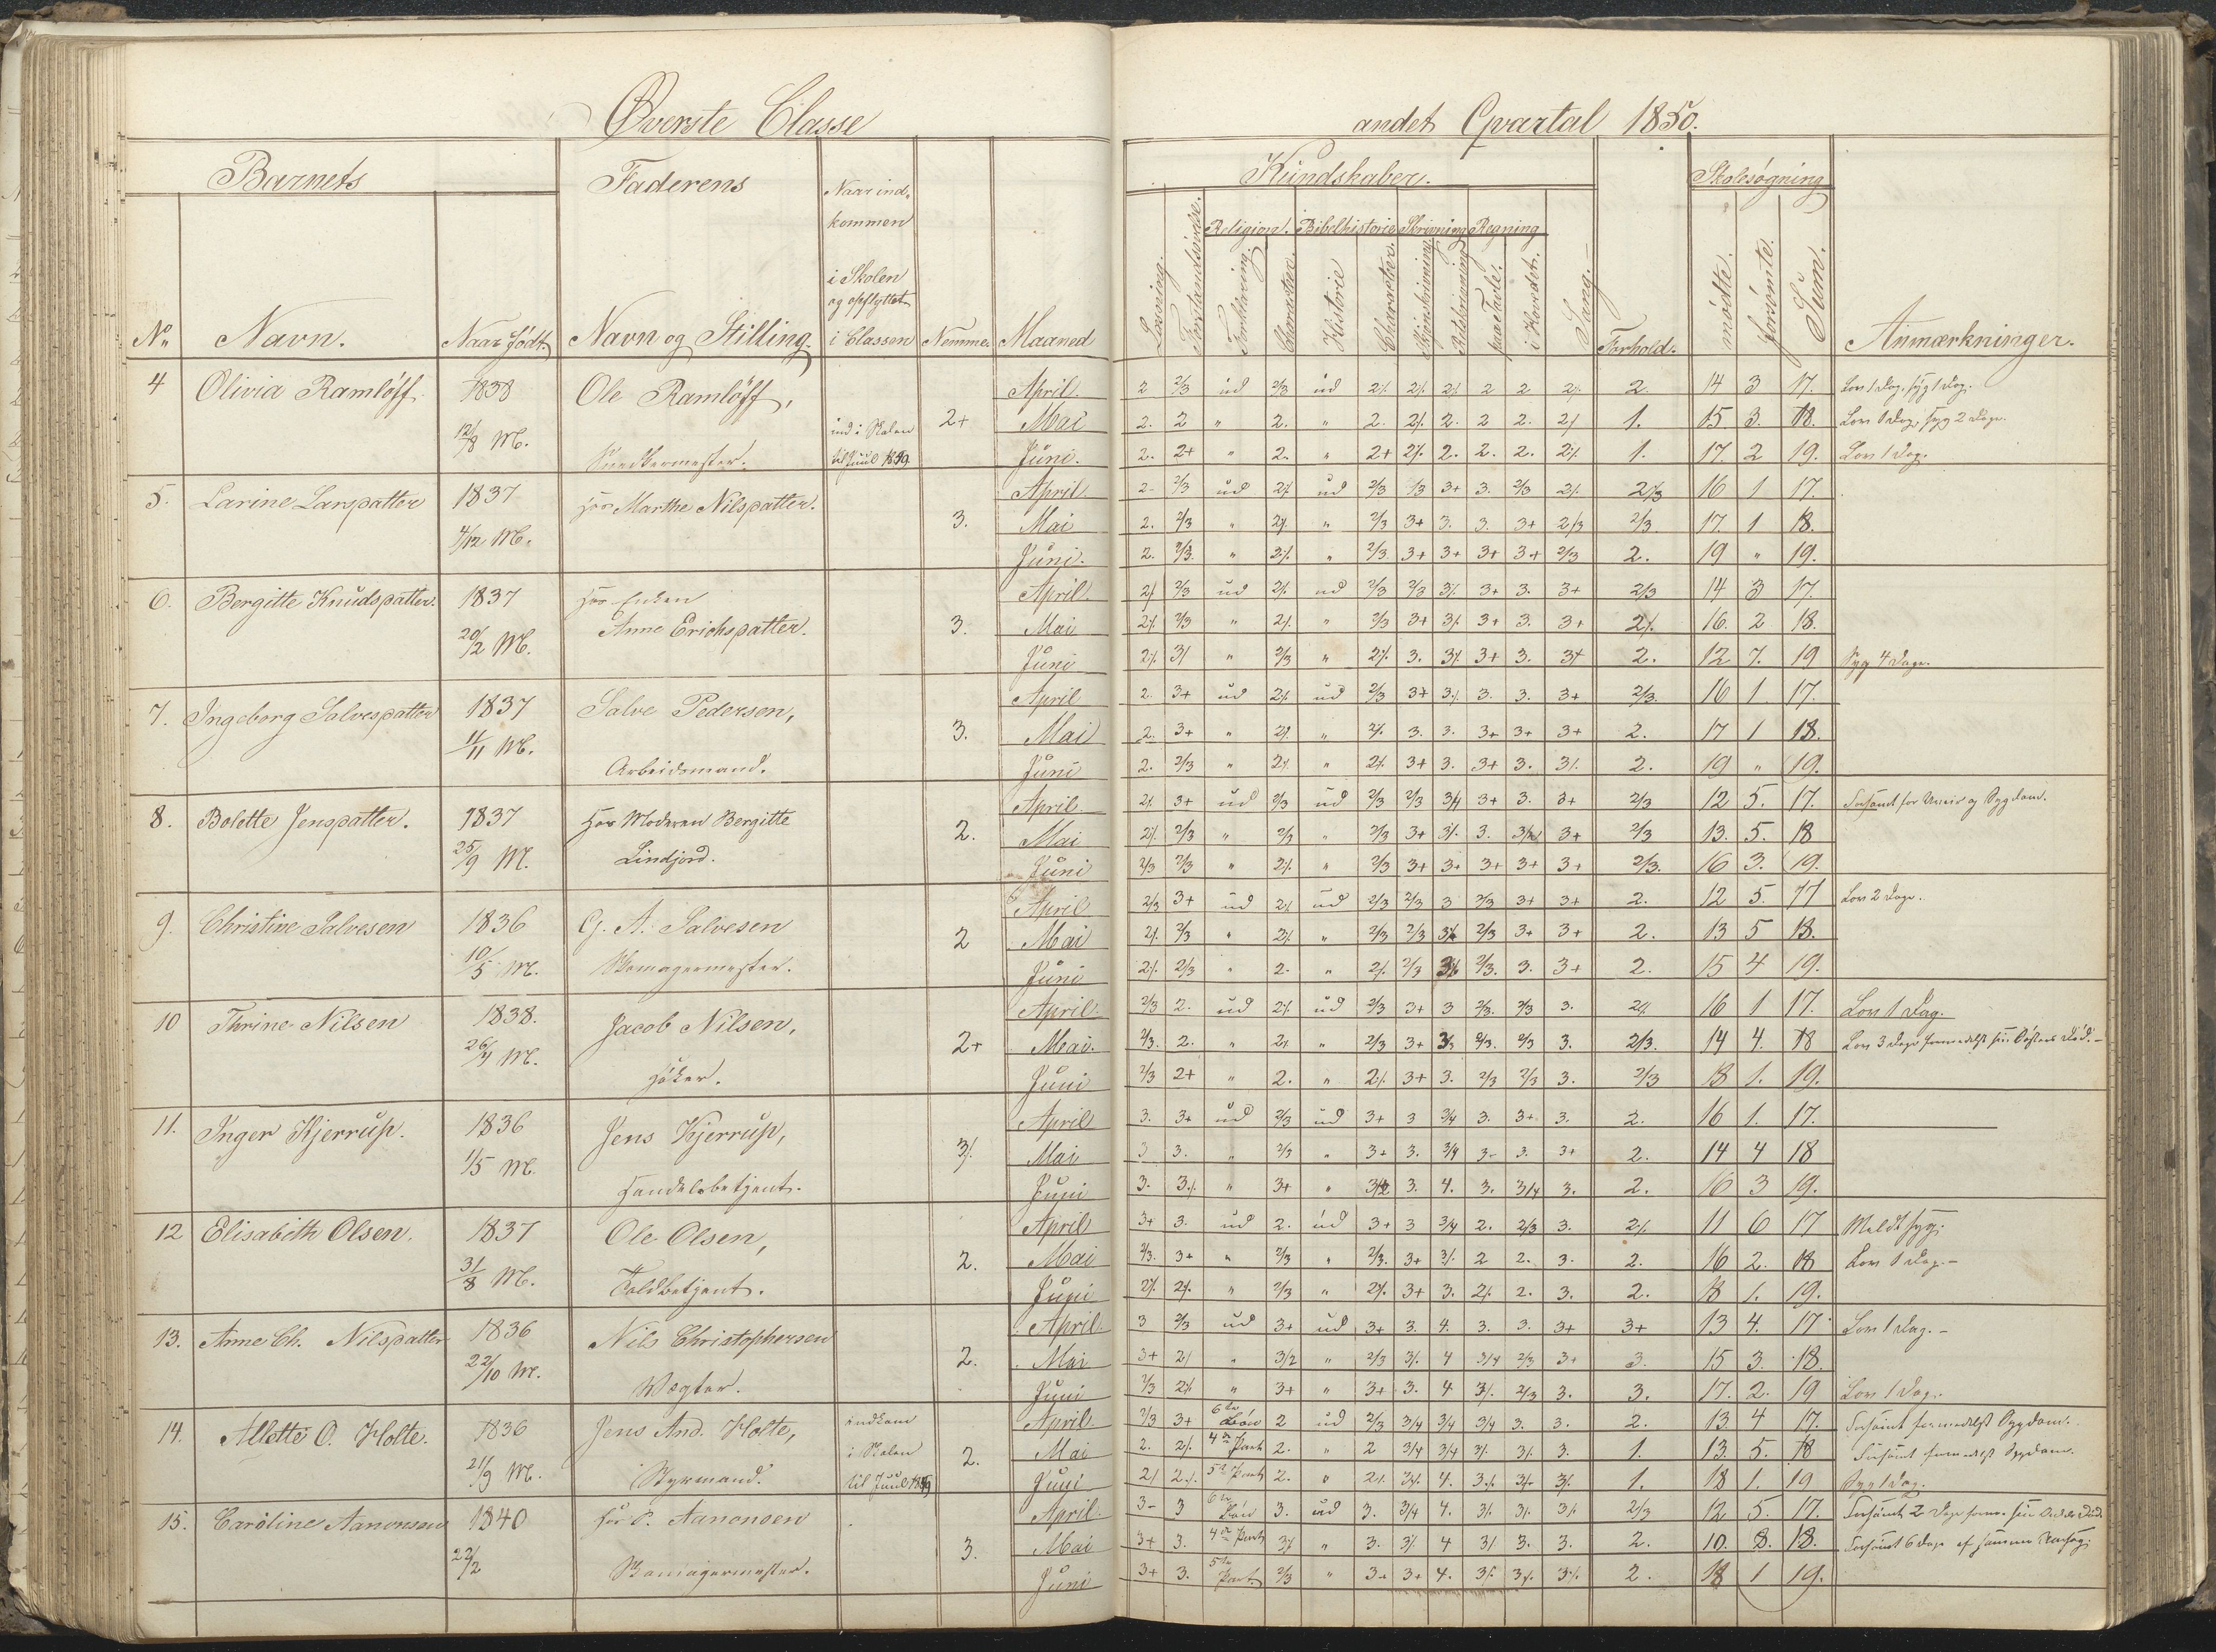 Øverste Classe
andet Qvartal 1850.
Barnets
Faderens
Naar ind-
kommen
i Skolen
og opflyttet
i Classen
No
Navn.
Naar født.
Navn og Stilling.
Nemme.
Maaned
Kundskaber.
Læsning.
Forstandsøvelse.
Religion.
Forklaring.
Charakter.
Bibelhistorie
Historie
Charakter.
Skrivning
Skjønskrivning
Retskrivning
Regning
paa Tavle.
i Hovedet.
Sang.
Forhold.
Skolesøgning
mødte.
forsømte.
Sum.
Anmærkninger.
4 Olivia Ramløff 1838 Ole Ramløff, April. 2 2/3 ud 2/3 ud 2 2 2. 14 3 17. Lov 1 Dag, syg 1 Dag.
12/8 M. Snedkermester. ind i Skolen 2+ Mai 2. 2 " 2. " 2. 2. 2 2. 1. 15. 3. 18. Lov 1 Dag, syg 2 Dage.
til Juul 1849. Juni. 2. 2+ " 2. " 2+ 2. 2. 2. 1. 17. 2 19. Lov 1 Dag.
5. Larine Larsdatter 1837 hos Marthe Nilsdatter. April 2/3 ud ud 2/3 3+ 3. 2/3 2/3 16 1 17.
4/12 M. 3. Mai 2. 2/3 " " 2/3 3+ 3. 3. 3+ 2/3 2/3 17. 1 18.
Juni. 2. 2/3. " " 2/3. 3+ 3+ 3+ 3+ 2/3 2. 19 " 19.
6. Bergitte Knudsdatter. 1837 hos Enken April 2/3 ud ud 2/3 2/3 3+ 3. 3+ 2/3 14 3 17.
20/2 M. Anne Erichsdatter. 3. Mai 2/3 " " 2/3 3+ 3+ 3. 3+ 16. 2 18.
Juni " 2/3 " 3. 3+ 3. 3+ 2. 12 7. 19 Syg 4 Dage.
7. Ingeborg Salvesdatter 1837 Salve Pedersen, April 2. 3+ ud ud 2/3 3+ 3. 3. 3+ 2/3. 16 1 17.
11/11 M. 3. Mai 2. 3+ " " 3. 3. 3+ 3+ 3+ 2. 17 1 18.
Arbeidsmand. Juni 2. 2/3 " " 3+ 3. 3+ 3. 2. 19 " 19.
8. Bolette Jensdatter. 1837 Hos Moderen Bergitte April. 3+ ud 2/3 ud 2/3 2/3 3/4 3+ 3. 3+ 2/3 12 5. 17. Forsømt for Uveir og Sygdom.
25/9 M. Lindjord. 2. Mai 2/3 " 2/3 " 2/3 3+ 3. 3+ 2/3 13. 5. 18
Juni 2/3 2/3 " " 2/3 3+ 3+ 3+ 3+ 3+ 2/3. 16 3. 19.
9. Christine Salvesen 1836 G. A. Salvesen April 2/3 3+ ud ud 2/3 2/3 3 2/3 3+ 3+ 2. 12 5. 17 Lov 2 Dage.
10/5 M. Skomagermester. 2 Mai 2/3 " " 2/3 2/3 2/3 3+ 3+ 2. 13 5 18.
Juni 2/3 " 2. " 2/3 2/3. 3. 3+ 2. 15 4 19.
10 Thrine Nilsen 1838. Jacob Nilsen, April. 2/3 2. ud ud 2/3 3+ 3 2/3. 2/3 3. 16 1 17. Lov 1 Dag.
26/4 M. Høker. 2+ Mai. 2/3. 2. " " 2/3 3+ 2/3. 2/3 3. 2/3. 14 4. 18 Lov 3 Dage formedelst sin Søsters Død.
Juni 2/3 2+ " 2. " 3+ 3. 2/3 2/3 3. 2/3 18 1. 19.
11. Inger Kjerrup. 1836 Jens Kjerrup, April 3. 3+ ud 2/3 ud 3+ 3 3/4 3. 3+ 3. 2. 16 1. 17.
1/5 M. Handelsbetjent. Mai 3 3. " 2/3 " 3+ 3. 3/4 3. 3+ 2. 14 4 18
Juni 3. " 3+ " 3. 4. 3. 3/4 3. 2. 16 3 19.
12 Elisabeth Olsen. 1837 Ole Olsen, April 3+ 3. ud 2. ud 3+ 3 3/4 2. 2/3 3. 11 6 17 Meldt syg.
31/8 M. Toldbetjent. 2. Mai 2/3. 3+ " 2/3 " 2/3. 3+ 2 2. 3. 2. 16 2. 18 Lov 1 Dag.
Juni " 2/3 " 3+ 3. 2. 3. 2. 18 1. 19.
13. Anne Ch. Nilsdatter 1836 Nils Christophersen April. 3 2/3 ud 3+ ud 3+ 3. 4. 3. 3. 3+ 3+ 13 4. 17 Lov 1 Dag.
22/10 M. Vægter. 2. Mai 3+ " 3/2 " 2/3 4 3/4 2/3 3+ 3. 15 3. 18.
Juni 2/3 " 3+ " 3+ 3. 4 2/3 3. 3. 17. 2. 19 Lov 1 Dag.
14. Allette O. Holte. 1836 Jens And. Holte, indkom April. 2/3 3+ 6te Bøn 2 ud 2/3 3/4 3/4 3/4 3. 3. 2. 13 4 17. Forsømt formedelst Sygdom.
21/9 M. Styrmand. i Skolen 2. Mai 2. 4de Part 2. " 2 3/4 3/4 3. 1. 13. 5. 18 Forsømt formedelst Sygdom.
til Juul 1849 Juni 5te Part 2. " 4. 1. 18 1. 19 Syg 1 Dag.
15. Caroline Aanonsen 1840 P. Aanonsen April. 3- 3 6te Bøn 3. ud 3. 3/4 4. 2/3 12 5. 17. Forsømt 2 Dage
22/2 Skomagermester. 3. Mai 3+ 3. 4de Part " 3. 4 3. 3. 2. 10. 8. 18. Forsømt 6 Dage af samme Aarsag.
Juni 3+ 3. 5te Part. 2/3 " 3+ 3+ 4. 2. 18 1 19.